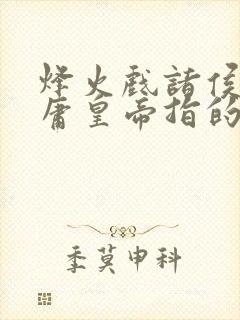 烽火戏诸侯
庸皇帝指的
季莫申科